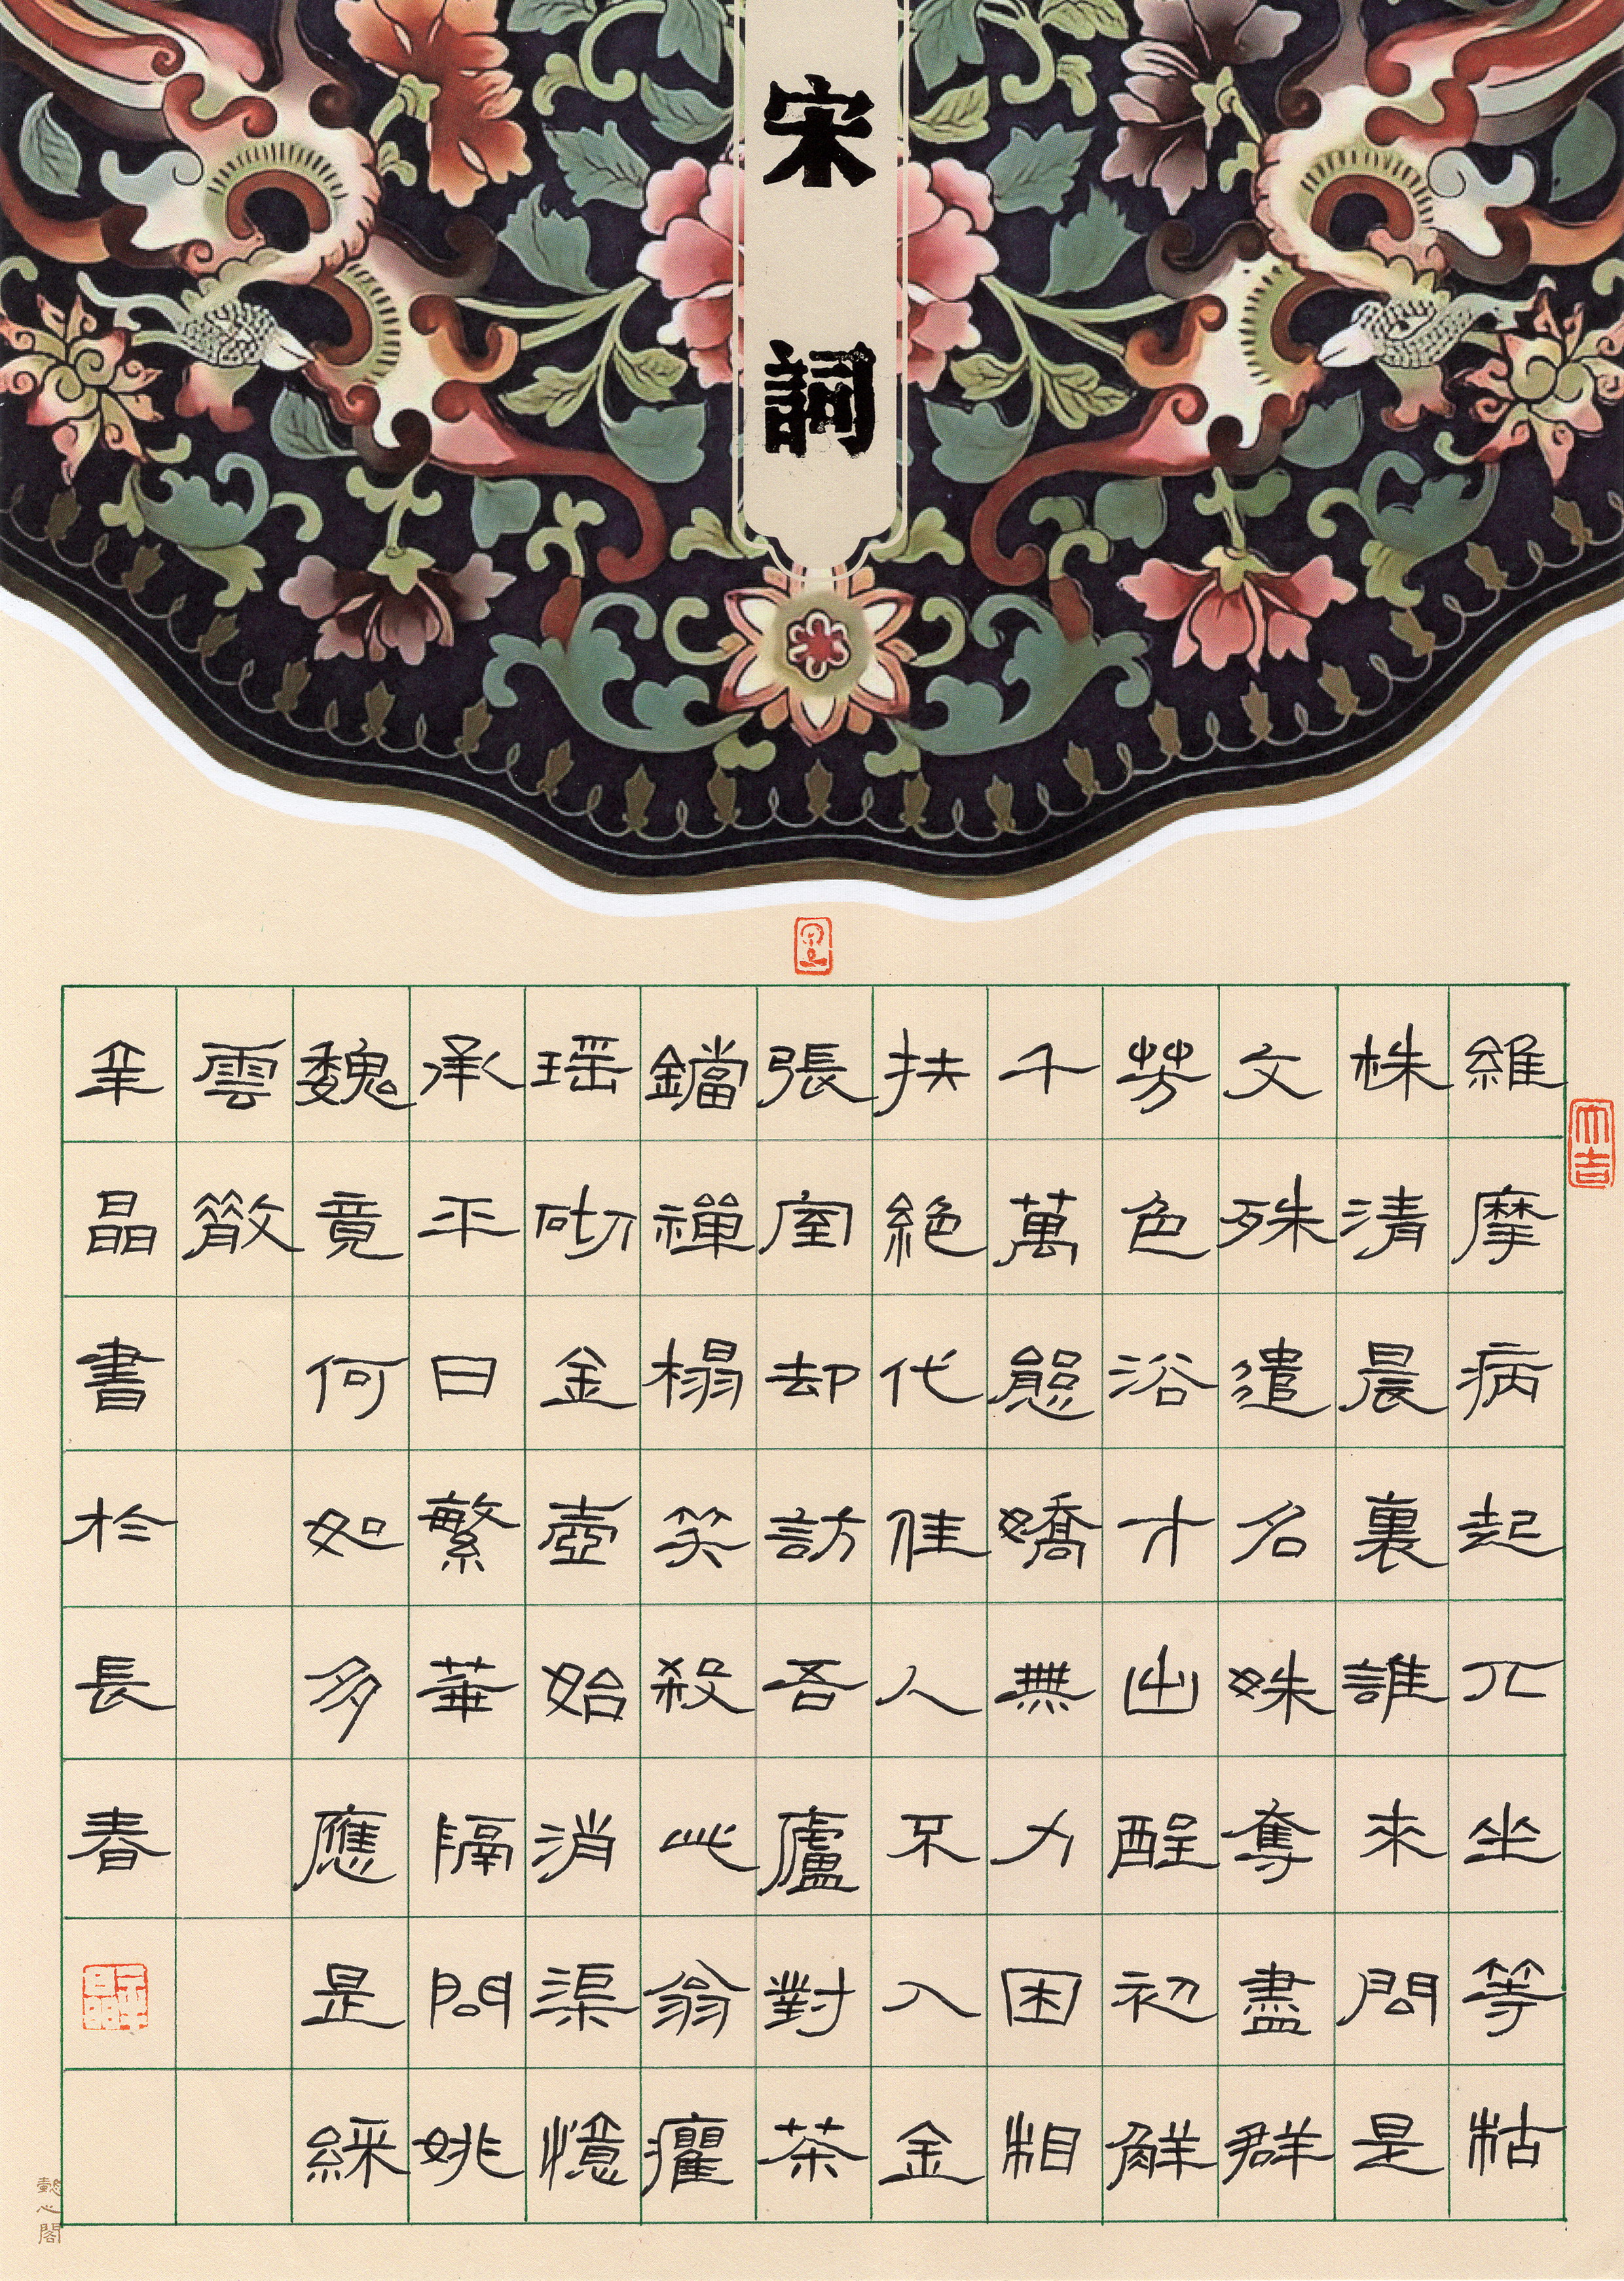 宋詞
維摩病起兀坐等枯
株清晨裏誰來問是
文殊遣名姝奪盡群
芳色浴才出酲初解
千萬態嬌無力困相
扶絕代佳人不入金
張室却訪吾廬對茶
鐺禪榻笑殺此翁癯
瑶砌金壺始消渠憶
承平日繁華隔問姚
魏竟何如多應是綵
雲散
晶書於長春
大吉
懿心閣